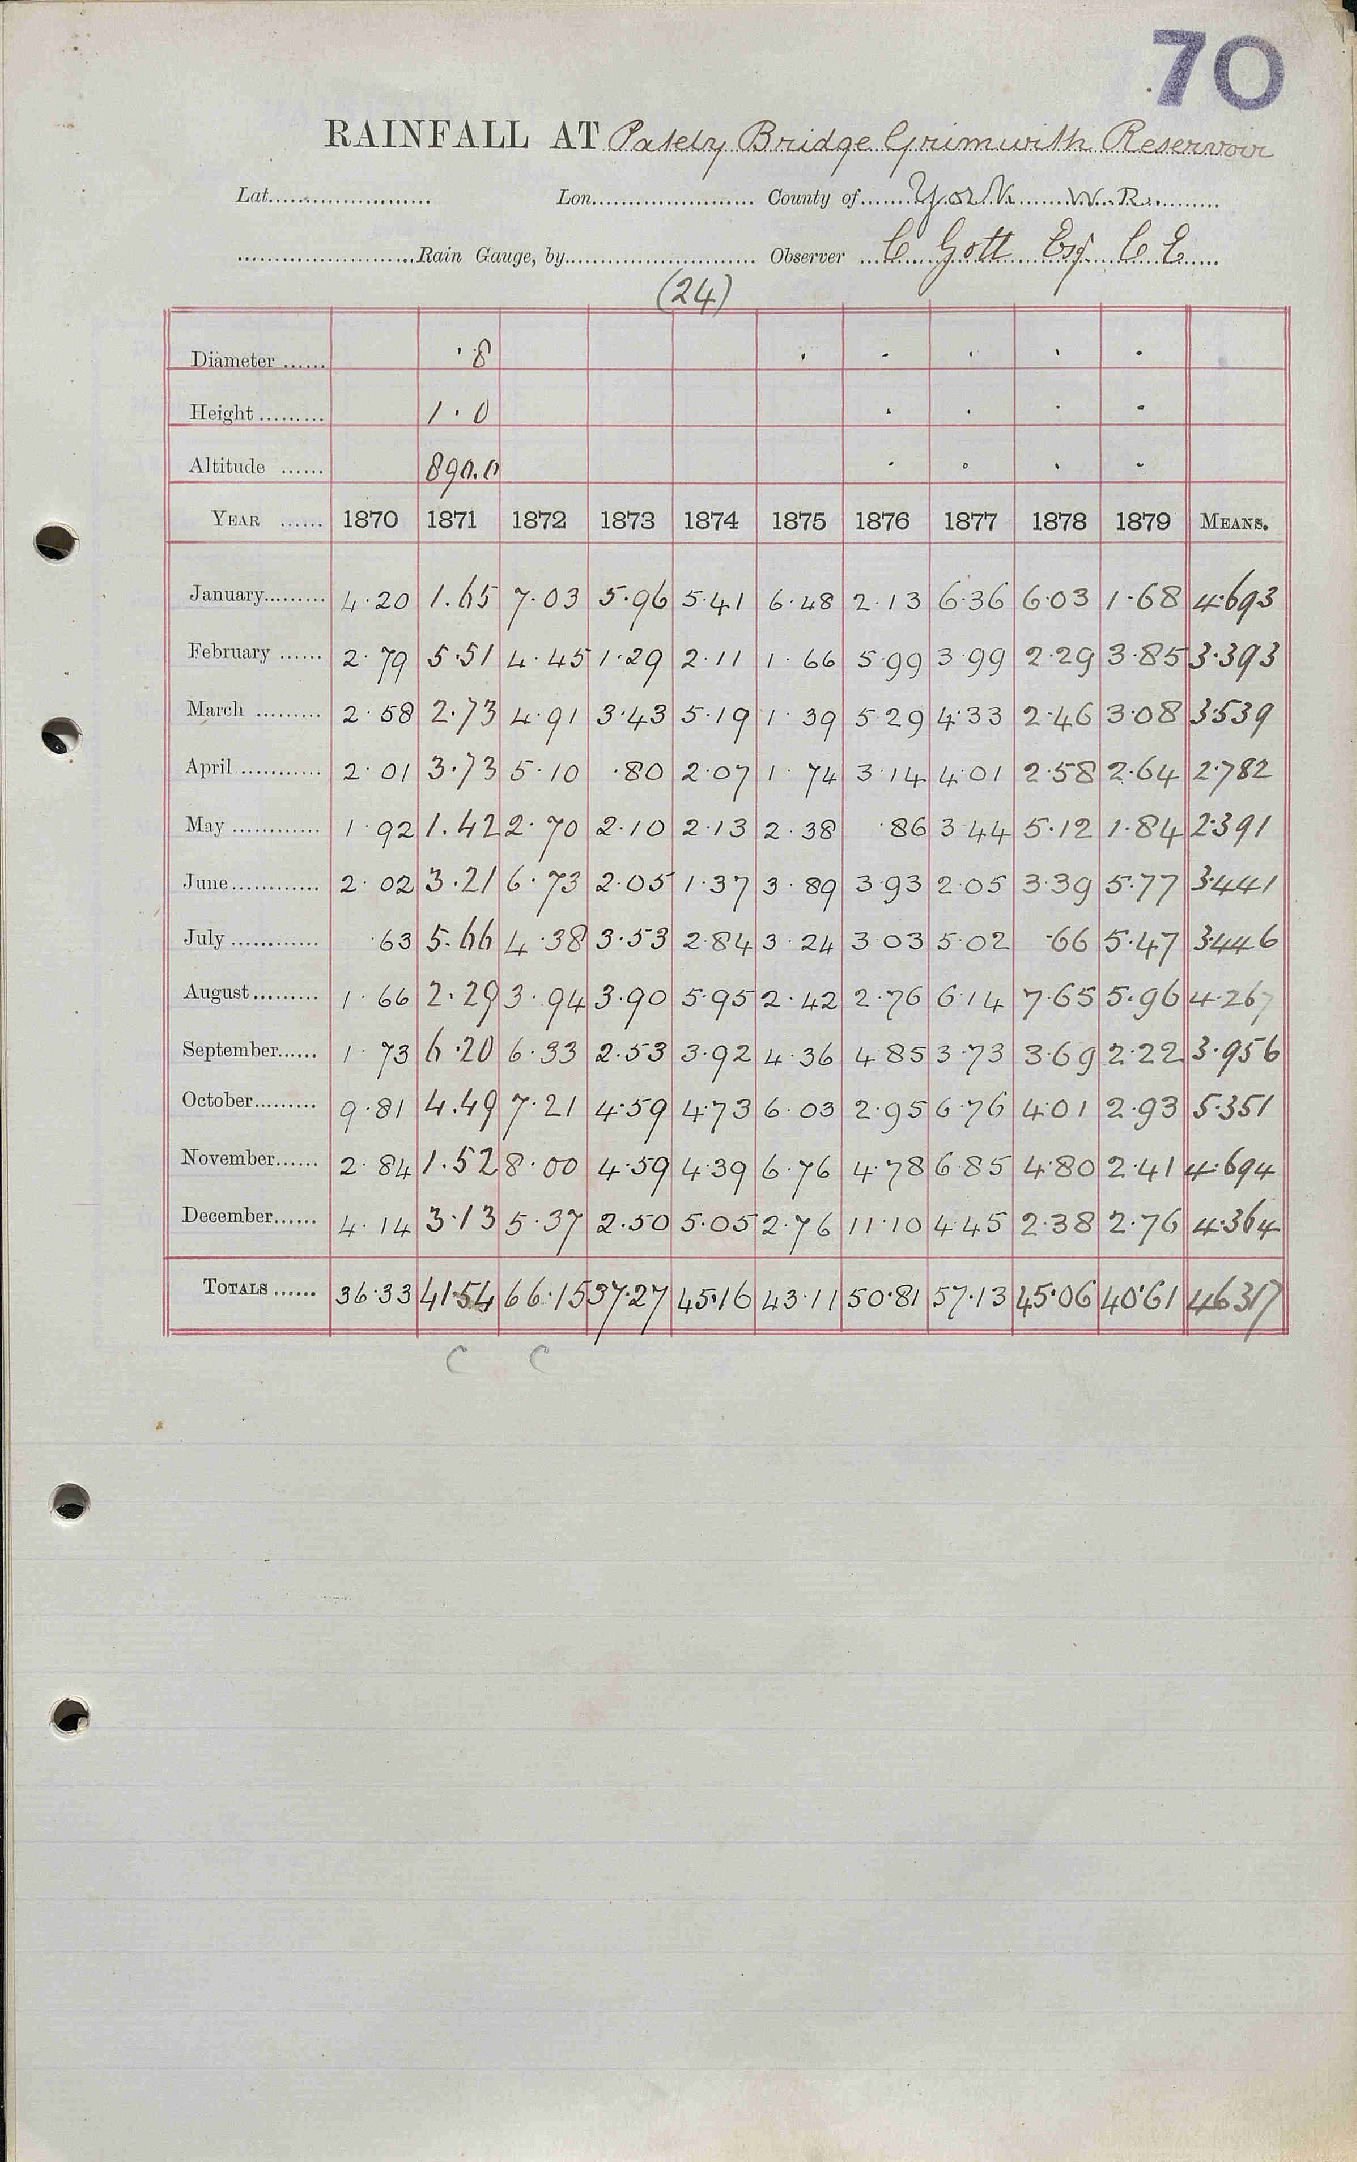 70
RAINFALL AT Pately Bridge Grimwith Reservoir
Lat...................... Lon...................... County of...... York W.R.
........................Rain Gauge, by.......................... Observer ... C Gott Esq C E
(24)
Diameter ...... · 8 · · · · ·
Height ......... 1 · 0 · · · ·
Altitude ...... 890.0 · · · ·
YEAR ...... 1870 1871 1872 1873 1874 1875 1876 1877 1878 1879 MEANS.
January......... 4·20 1.65 7·03 5·96 5·41 6·48 2·13 6·36 6·03 1·68 4·693
February ...... 2·79 5·51 4·45 1·29 2·11 1·66 5·99 3·99 2·29 3·85 3·393
March ......... 2·58 2·73 4·91 3·43 5·19 1·39 5·29 4·33 2·46 3·08 3·539
April ............ 2·01 3·73 5·10 ·80 2·07 1·74 3·14 4·01 2·58 2·64 2·782
May ............ 1·92 1.42 2·70 2·10 2·13 2·38 ·86 3·44 5·12 1·84 2·391
June............ 2·02 3·21 6·73 2·05 1·37 3·89 3·93 2·05 3·39 5·77 3·441
July ............ ·63 5.66 4·38 3·53 2·84 3·24 3·03 5·02 ·66 5·47 3·446
August......... 1·66 2·29 3·94 3·90 5·95 2·42 2·76 6·14 7·65 5·96 4·267
September...... 1·73 6·20 6·33 2·53 3·92 4·36 4·85 3·73 3·69 2·22 3·956
October......... 9·81 4.49 7·21 4·59 4·73 6·03 2·95 6·76 4·01 2·93 5·351
November...... 2·84 1.52 8·00 4·59 4·39 6·76 4·78 6·85 4·80 2·41 4·694
December...... 4·14 3·13 5·37 2·50 5·05 2·76 11·10 4·45 2·38 2·76 4·364
TOTALS ...... 36·33 41·54 66·15 37·27 45·16 43·11 50·81 57·13 45·06 40·61 46317
C C